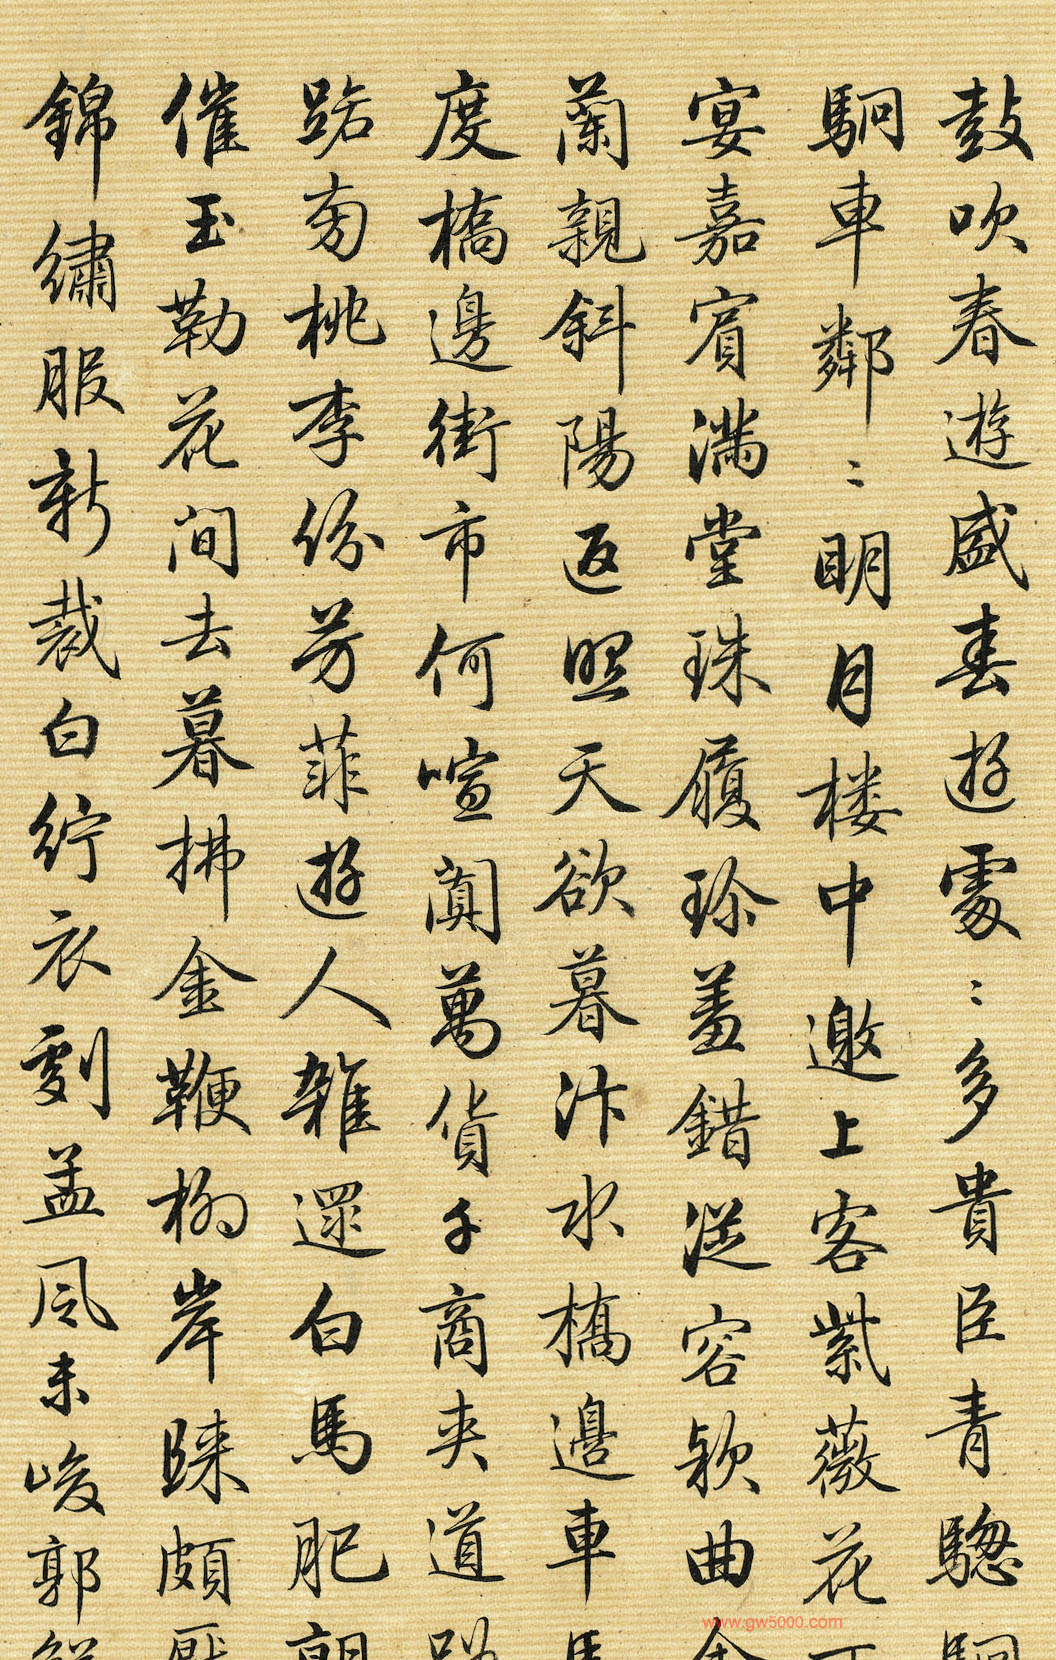 鼓吹春遊盛春遊處〻多貴臣青驄
駉車鄰〻明月楼中邀上客紫薇花
宴嘉賓满堂珠履珍羞錯從容欵曲
蘭親斜陽返照天欲暮汴水橋邊車
度橋邊街市何喧闐萬貨千商夹道
踮匆桃李份芳菲遊人雜還白馬肥
催玉勒花间去暮拂金鞭柳岸睐頗
錦繡服新裁白紵衣劉孟风未峻郭
www.gw5000.com